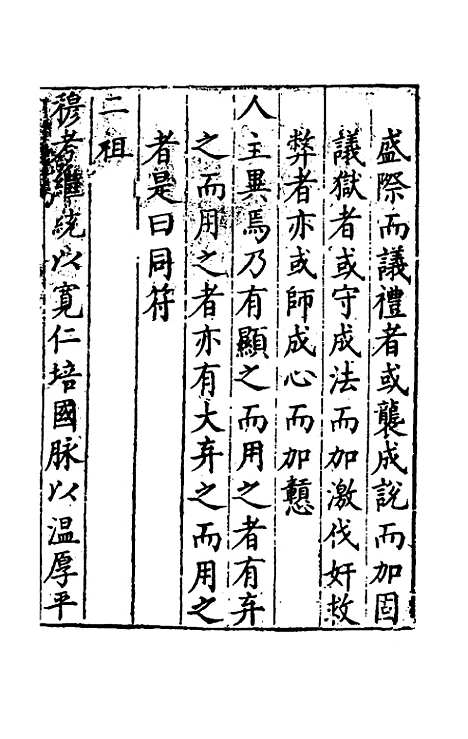 盛際而議禮者或襲成說而加固
議獄者或守成法而加激伐奸救
弊者亦或師成心而加戇
人主異焉乃有顯之而用之者有弃
之而用之者亦有大弃之而用之
者是曰同符
二祖
穆考繼統以寬仁培國脉以温厚平